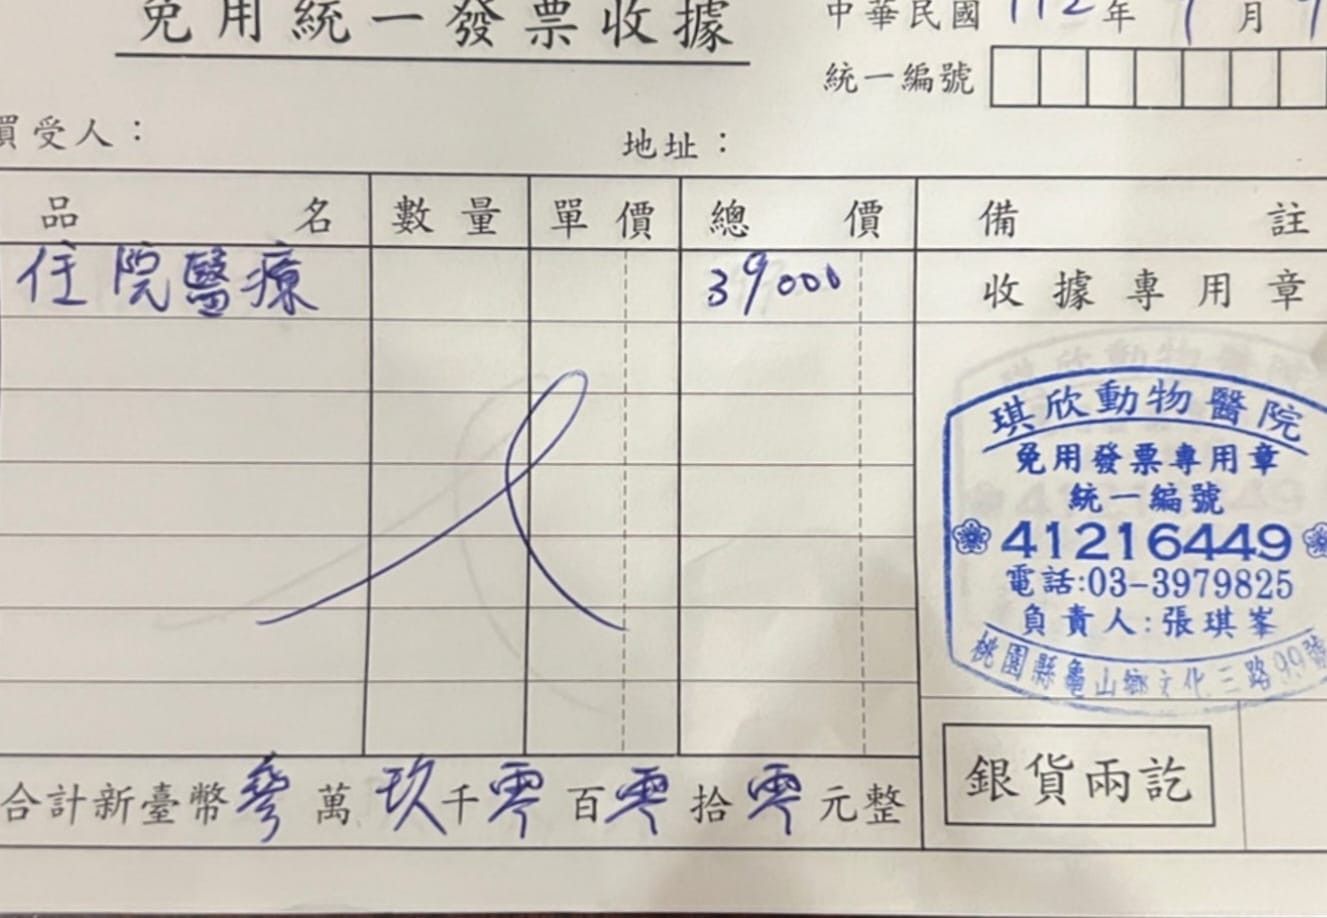 免用統一發票收據
中華民國112年 月
統一編號
買受人：
地址：
品名 數量 單價 總價 備註
住院醫療 39000 收據專用章
琪欣動物醫院
免用發票專用章
統一編號
41216449
電話:03-3979825
負責人:張琪峯
桃園縣龜山鄉文化三路99號
合計新臺幣參萬玖千零百零拾零元整
銀貨兩訖